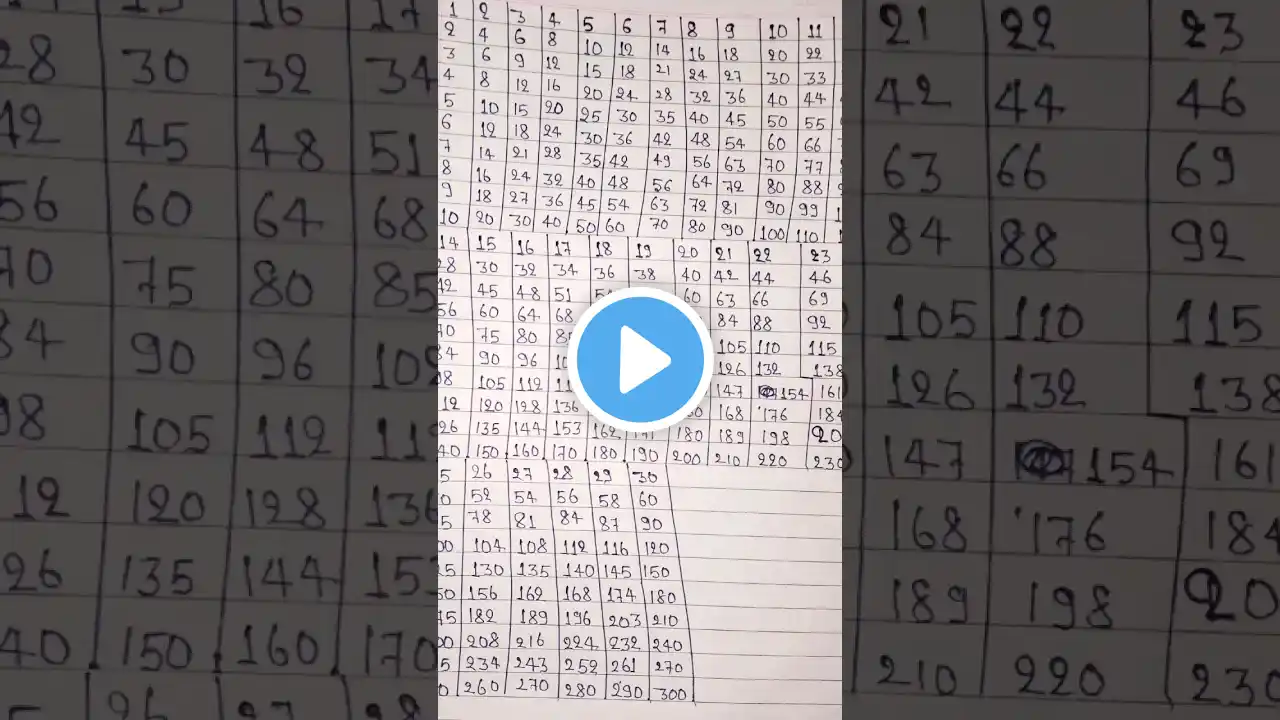 1 2 3 4 5 6 7 8 9 10 11
2 4 6 8 10 12 14 16 18 20 22
3 6 9 12 15 18 21 24 27 30 33
4 8 12 16 20 24 28 32 36 40 44
5 10 15 20 25 30 35 40 45 50 55
6 12 18 24 30 36 42 48 54 60 66
7 14 21 28 35 42 49 56 63 70 77
8 16 24 32 40 48 56 64 72 80 88
9 18 27 36 45 54 63 72 81 90 99
10 20 30 40 50 60 70 80 90 100 110
14 15 16 17 18 19 20 21 22 23
28 30 32 34 36 38 40 42 44 46
42 45 48 51 60 63 66 69
56 60 64 68 84 88 92
70 75 80 85 105 110 115
84 90 96 126 132 138
98 105 112 147 154 161
12 120 128 136 168 176 184
26 135 144 153 162 171 180 189 198 20
40 150 160 170 180 190 200 210 220 230
5 26 27 28 29 30
0 52 54 56 58 60
5 78 81 84 87 90
00 104 108 112 116 120
25 130 135 140 145 150
50 156 162 168 174 180
75 182 189 196 203 210
00 208 216 224 232 240
5 234 243 252 261 270
0 260 270 280 290 300